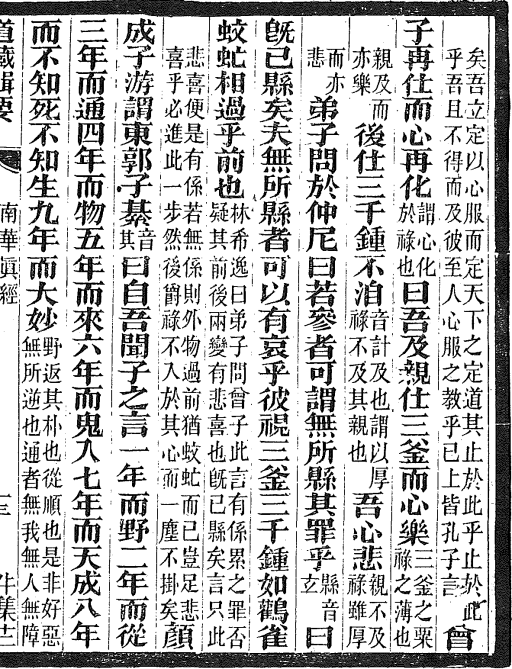 矣吾立定以心服而定天下之定道其止於此乎止於此
乎吾且不得而及彼至人心服之教乎已上皆孔子言
曾
子再仕而心再化謂心化於祿也曰吾及親仕三釜而心樂三釜之粟祿之薄也
親及而亦樂後仕三千鍾不洎音計及也謂以厚祿不及其親也吾心悲親不及祿雖厚
而亦悲弟子問於仲尼曰若參者可謂無所縣其罪乎縣音玄曰
旣已縣矣夫無所縣者可以有哀乎彼視三釜三千鍾如鸛雀
蚊虻相過乎前也林希逸曰弟子問曾子此言有係累之罪否疑其前後兩變有悲喜也旣已縣矣言只此
悲喜便是有係若無係則外物過前猶蚊虻而已豈足悲喜乎必進此一步然後爵祿不入於其心而一塵不掛矣顏
成子游謂東郭子綦音其曰自吾聞子之言一年而野二年而從
三年而通四年而物五年而來六年而鬼入七年而天成八年
而不知死不知生九年而大妙野返其朴也從順也是非好惡無所逆也通者無我無人無障
道藏輯要 南華眞經